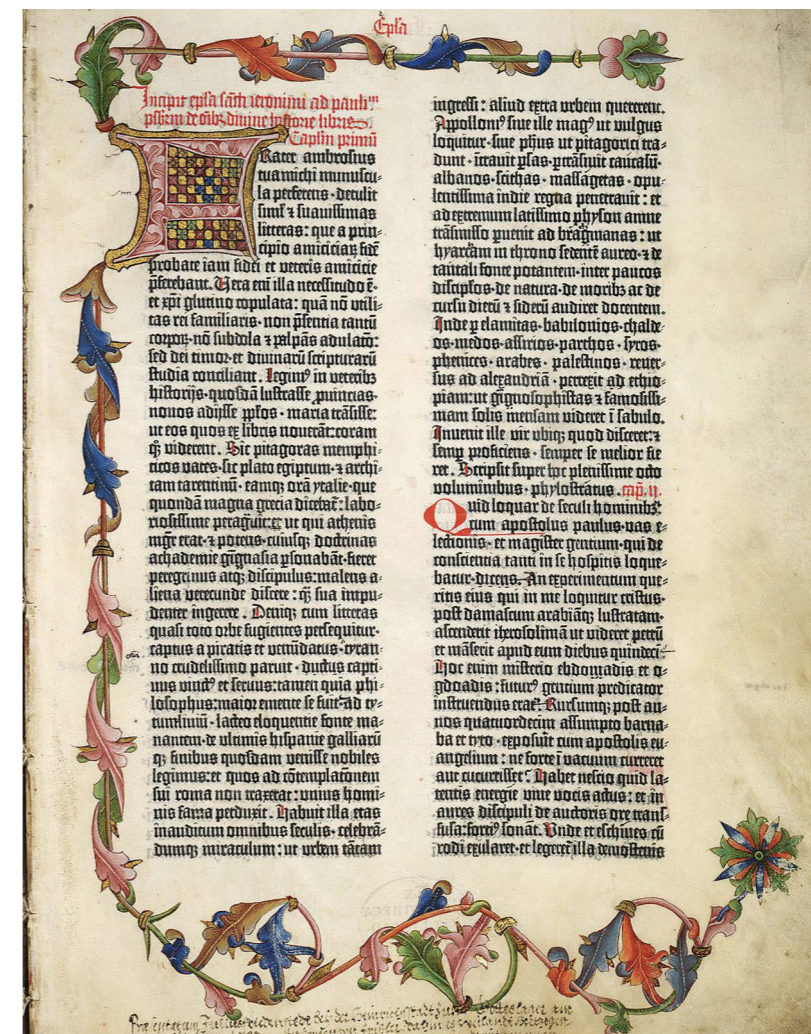 Epl̄a
Incipit epl̄a sācti ieronimi ad paulinū
p̄sbiterū de oīb; diuine historie libris.
Capl̄m primū
Frater ambrosius
tua michi munuscu-
la perferens · detulit
siml̄ ⁊ suauissimas
litteras: que a prin-
cipio amicitiaꝝ fidē
probate iam fidei et veteris amicicie
p̄ferebant. Uera eni̅ illa necessitudo ē·
et xp̄i glutino copulata: quā nō utili-
tas rei familiaris· non p̄sentia tantū
corpoꝝ·nō subdola ⁊ palpās adulatō:
sed dei timor·et diuinarū scripturarū
studia conciliant. Legimꝰ in veterib;
historijs·quosdā lustrasse ꝓuincias·
nouos adijsse pp̄los· maria trāsisse:
ut eos quos ex libris nouerāt:coram
qꝫ viderent. Sic pitagoras memphi-
ticos vates·sic plato egiptum·⁊ archi-
tam tarentinū· eamqꝫ orā ytalie·que
quondā magna grecia dicebat̄: labo-
riosissime peragᷓuit:et ut qui athenis
mgr̄ erat·⁊ potens·cuiusqꝫ doctrinas
achademie gignasia ꝑsonabāt·fieret
peregrinus atqꝫ discipulus:malens a-
liena verecunde discere: qꝫ sua impu-
denter ingerere. Deniqꝫ cum litteras
quasi toto orbe fugientes persequitur·
captus a piratis et venūdatus·tyran-
no crudelissimo paruit· ductus capti-
uus vinctꝰ et seruus:tamen quia phi-
losophus:maior emente se fuit·ad ty-
tumliuiū· lacteo eloquentie fonte ma-
nantem·de vltimis hispanie galliarū
qꝫ finibus quosdam venisse nobiles
legimus:et quos ad cōtemplatōnem
sui roma non traxerat:vnius homi-
nis fama perduxit. Habuit illa etas
inauditum omnibus seculis· celebrā-
dumqꝫ miraculum: ut vrbem tātam
ingressi: aliud extra vrbem quererent.
Appolloniꝰ siue ille magꝰ ut vulgus
loquitur·siue ph̄us ut pitagorici tra-
dunt·ītrauit ꝑsas·ꝑtrāsiuit caucasū·
albanos·scithas·massagetas·opu-
lentissima indie regna penetrauit: et
ad extremum latissimo physon amne
trāsmisso ꝑuenit ad bragmanas: ut
hyarcam in throno sedentē aureo·⁊ de
tantali fonte potantem·inter paucos
discipl̄os·de natura·de morib; ac de
cursu dierū ⁊ siderū audiret docentem.
Inde ꝑ elamitas·babilonios·chalde-
os·medos·assirios·parthos·syros·
phenices·arabes·palestinos·reuer-
sus ad alexandriā·perrexit ad ethio-
piam:ut gignosophistas ⁊ famosissi-
mam solis mensam videret ī sabulo.
Inuenit ille vir vbiqꝫ quod disceret:⁊
semꝑ proficiens·semper se melior fie
ret. Scripsit super hoc plenissime octo
voluminibus·phylostratus. cap̄. ii.
Quid loquar de seculi hominib;
cum apostolus paulus·vas e-
lectionis·et magister gentium·qui de
conscientia tanti in se hospitis loque-
batur·dicens. An experimentum que-
ritis eius qui in me loquitur cristus·
post damascum arabiāqꝫ lustratam·
ascenderit iherosolimā ut videret petrū
et māserit apud eum diebus quindecī.
Hoc enim misterio ebdomadis et o-
gdoadis:futurꝰ gentium predicator
instruendus erat. Rursumqꝫ post an-
nos quatuordecim assumpto barna-
ba et tyto·exposuit cum apostolis eu-
angelium: ne forte ī vacuum curreret
aut cucurrisset. Habet nescio quid la-
tentis energie viue vocis actus: et in
aures discipuli de auctoris ore trans-
fusa:fortiꝰ sonat. Unde et eschines cū
rodi exularet·et legeret̄ illa demostenis